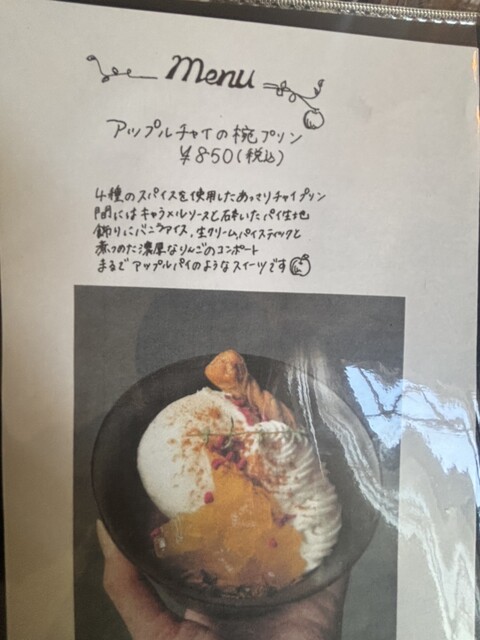 Menu
アップルチャイの椀プリン
¥850(税込)
4種のスパイスを使用したあっさりチャイプリン
間にはキャラメルソースと砕いたパイ生地
飾りにバニラアイス、生クリーム、パイスティックと
煮つめた濃厚なりんごのコンポート
まるでアップルパイのようなスイーツです